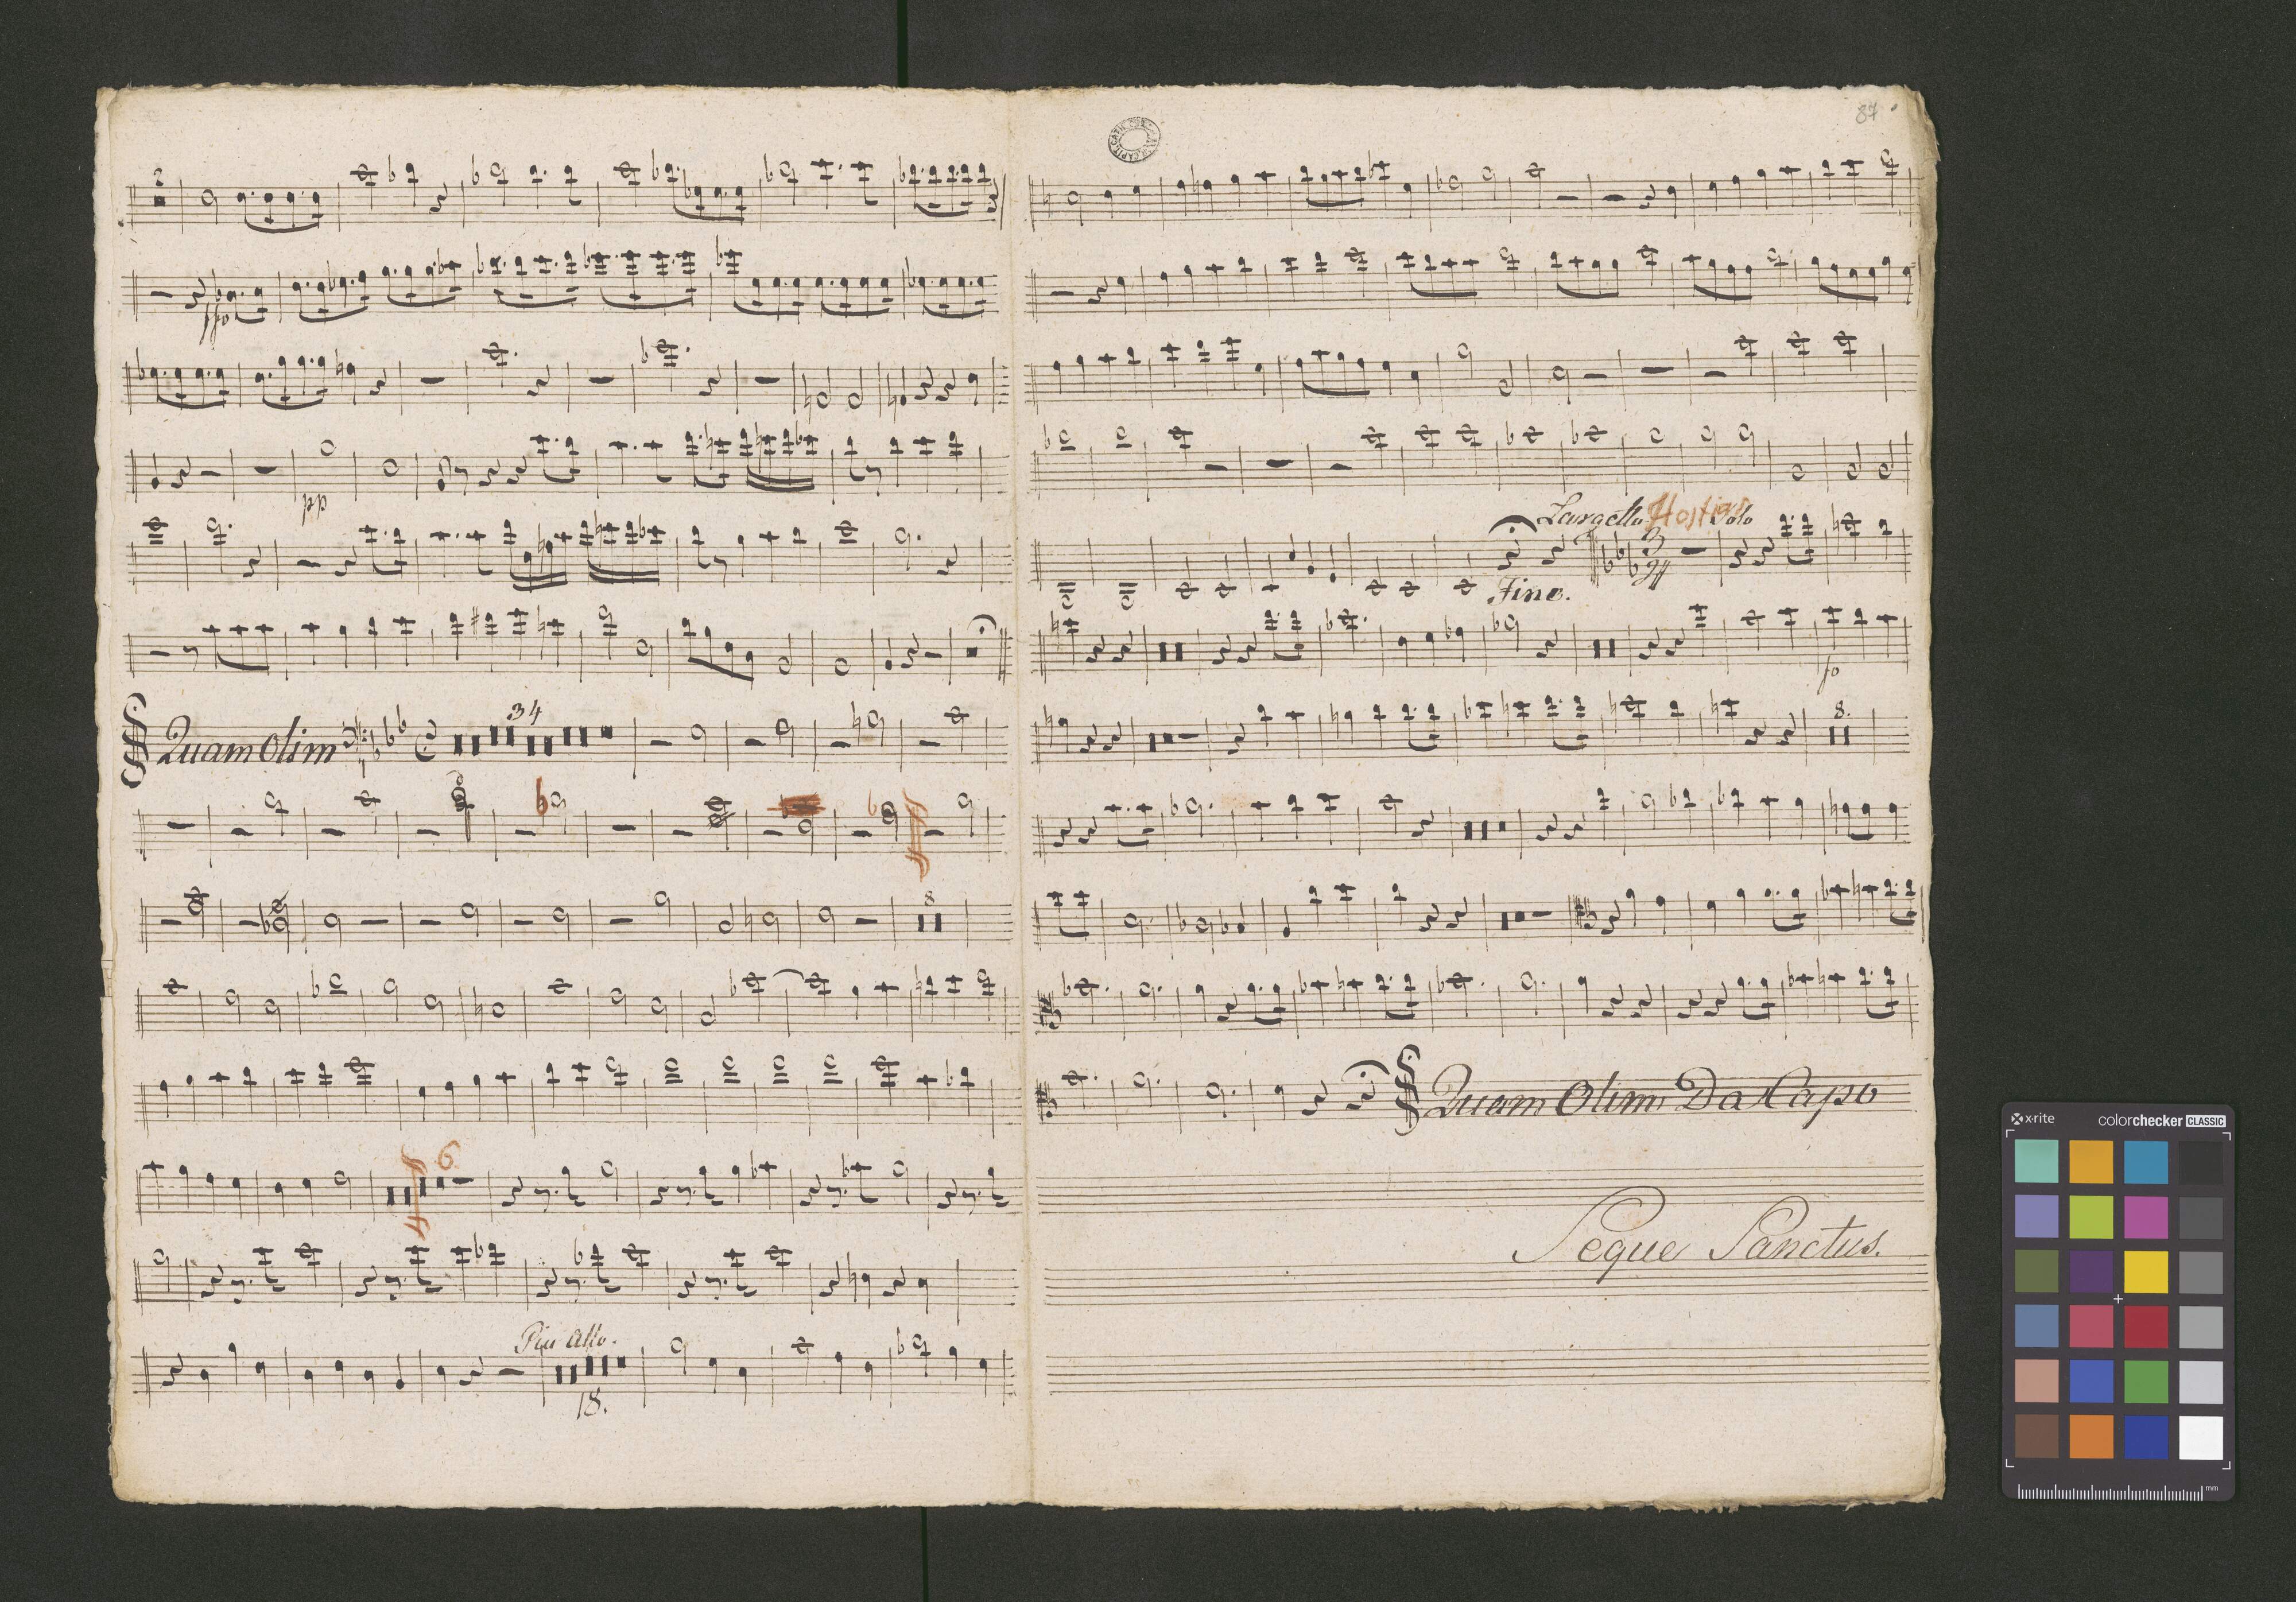 2
pfo
pp
Quam Olim
34
8
6
Piu Allo.
18.
87
Largetto Hostias Solo
Fine.
fo
8.
Quam Olim Da Capo
Segue Sanctus.
x-rite colorchecker CLASSIC
mm